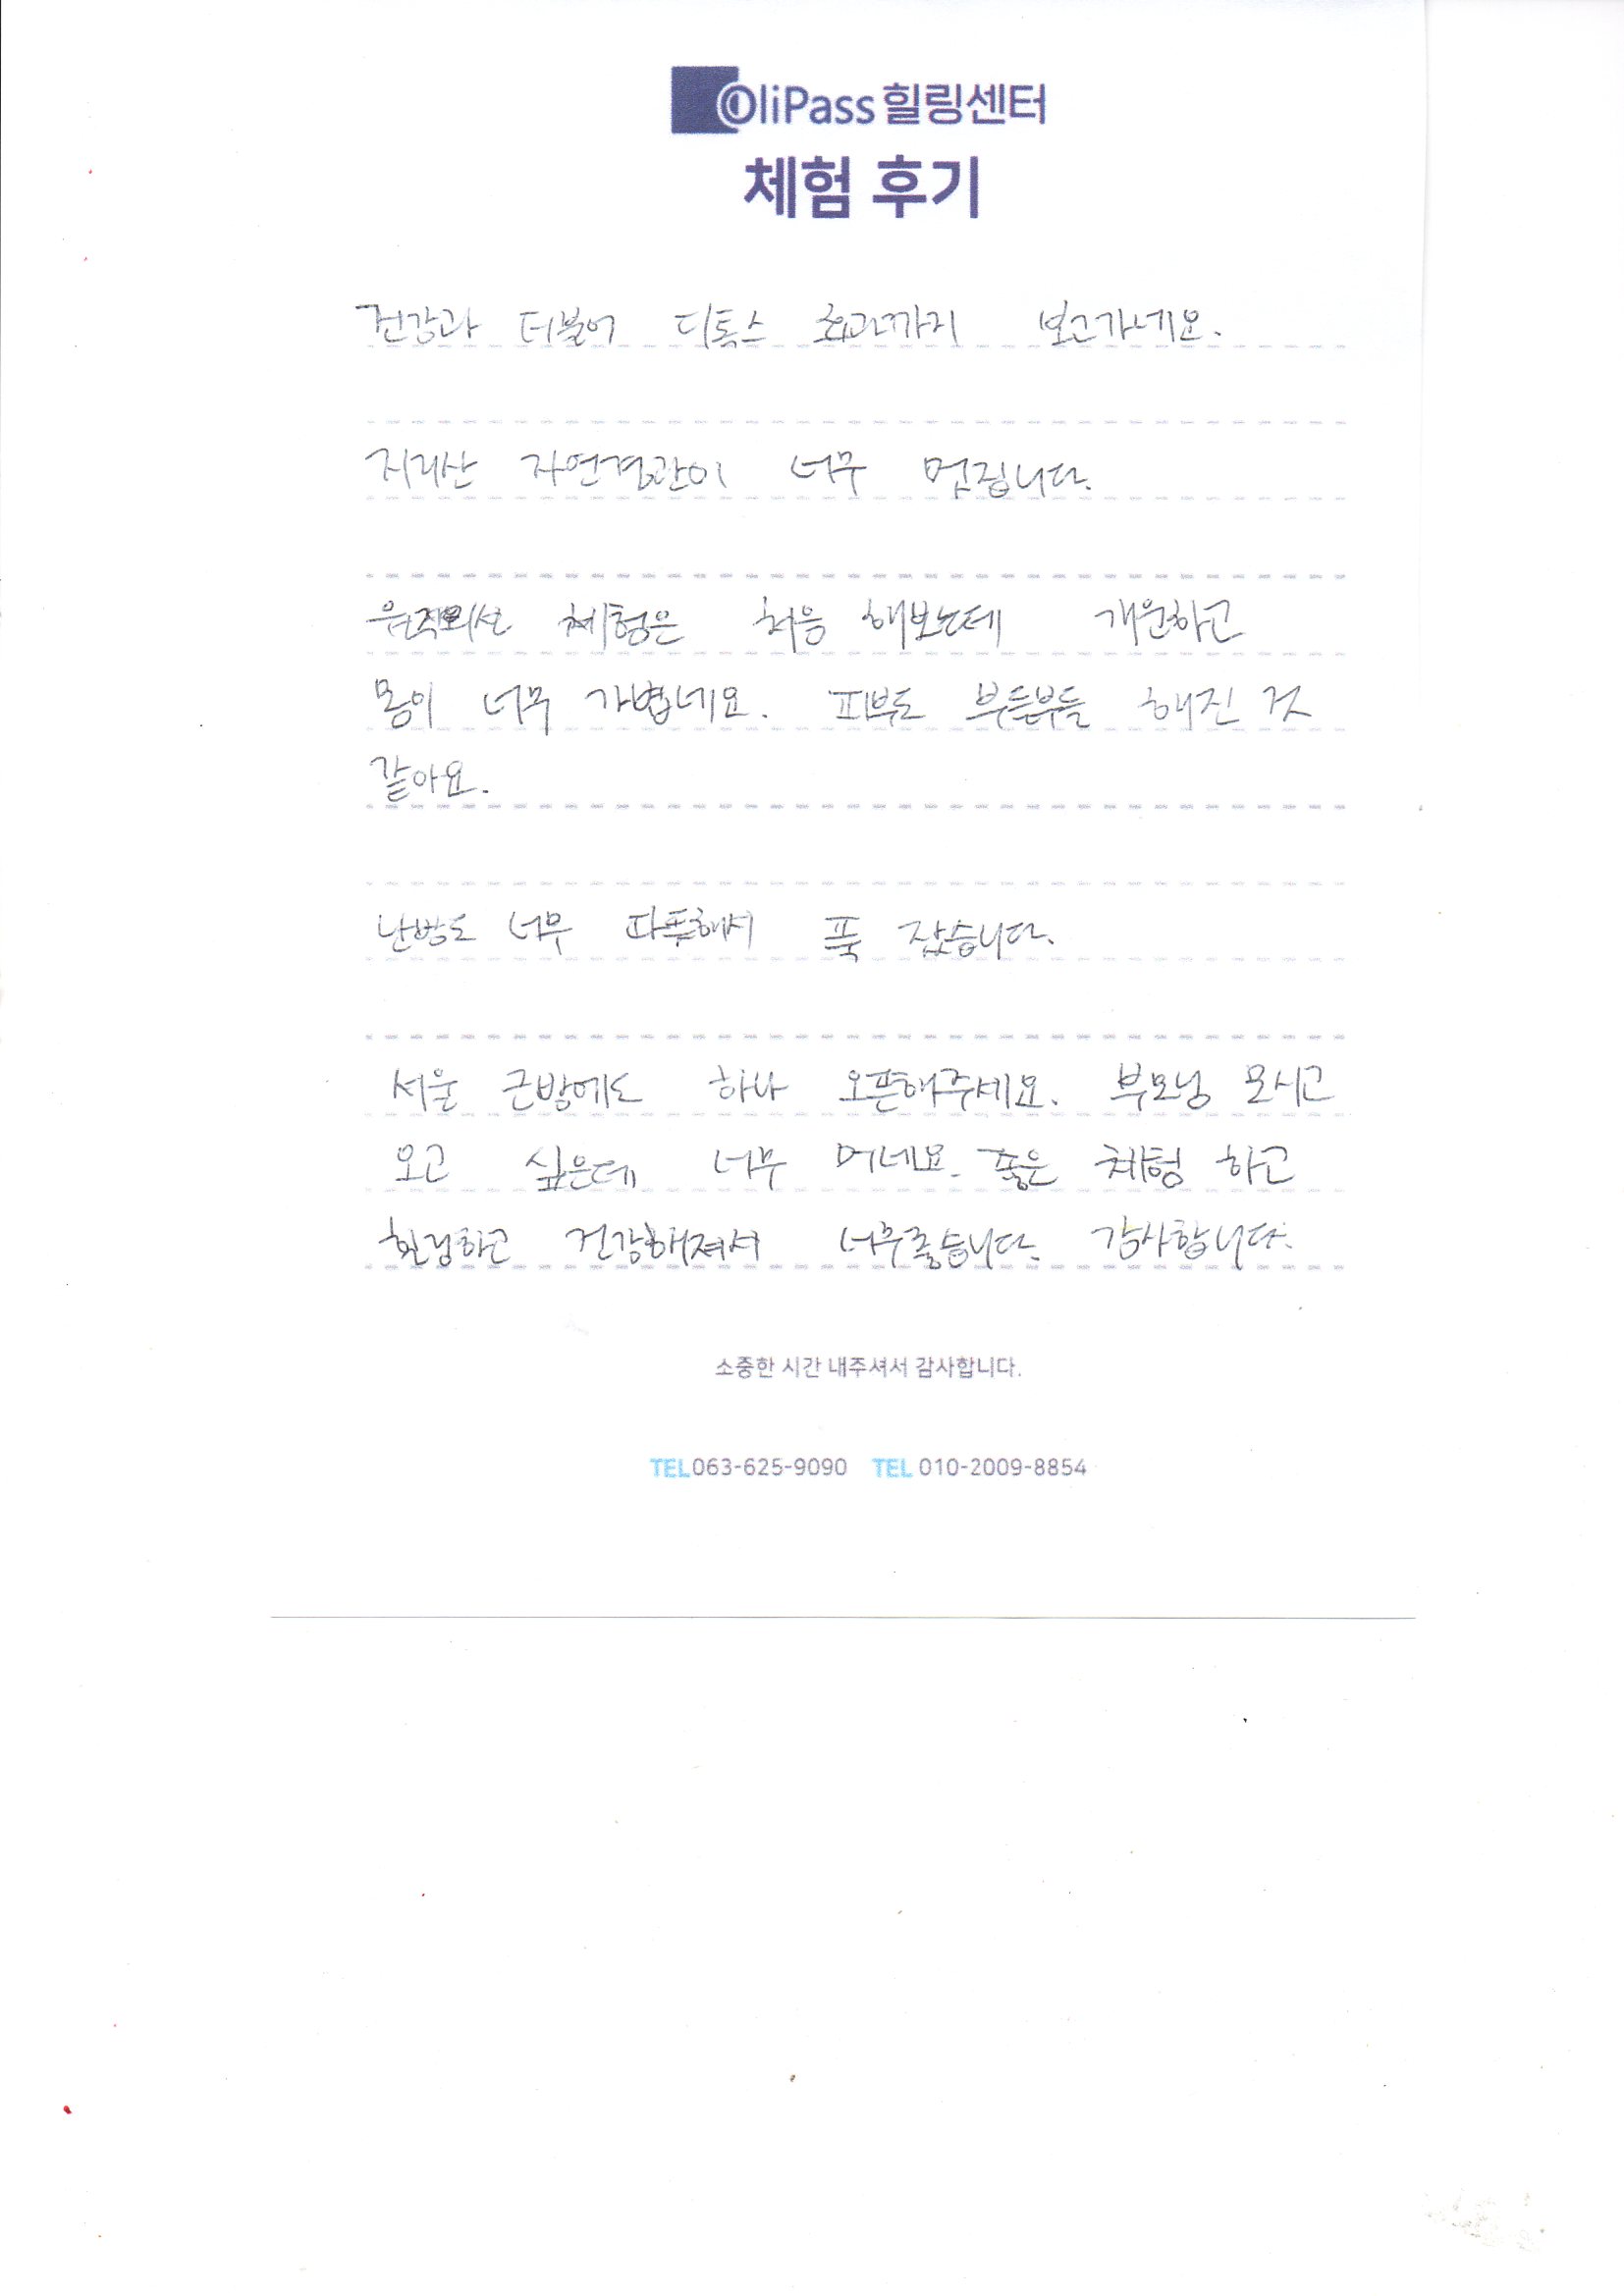 OliPass 힐링센터
체험 후기
건강과 더불어 디톡스 효과까지 보고가네요.
지리산 자연경관이 너무 멋집니다.
원적외선 체험은 처음 해보는데 개운하고
몸이 너무 가볍네요. 피부도 부들부들 해진 것
같아요.
난방도 너무 따뜻해서 푹 잤습니다.
서울 근방에도 하나 오픈해주세요. 부모님 모시고
오고 싶은데 너무 머네요. 좋은 체험 하고
힐링하고 건강해져서 너무좋습니다. 감사합니다.
소중한 시간 내주셔서 감사합니다.
TEL 063-625-9090 TEL 010-2009-8854